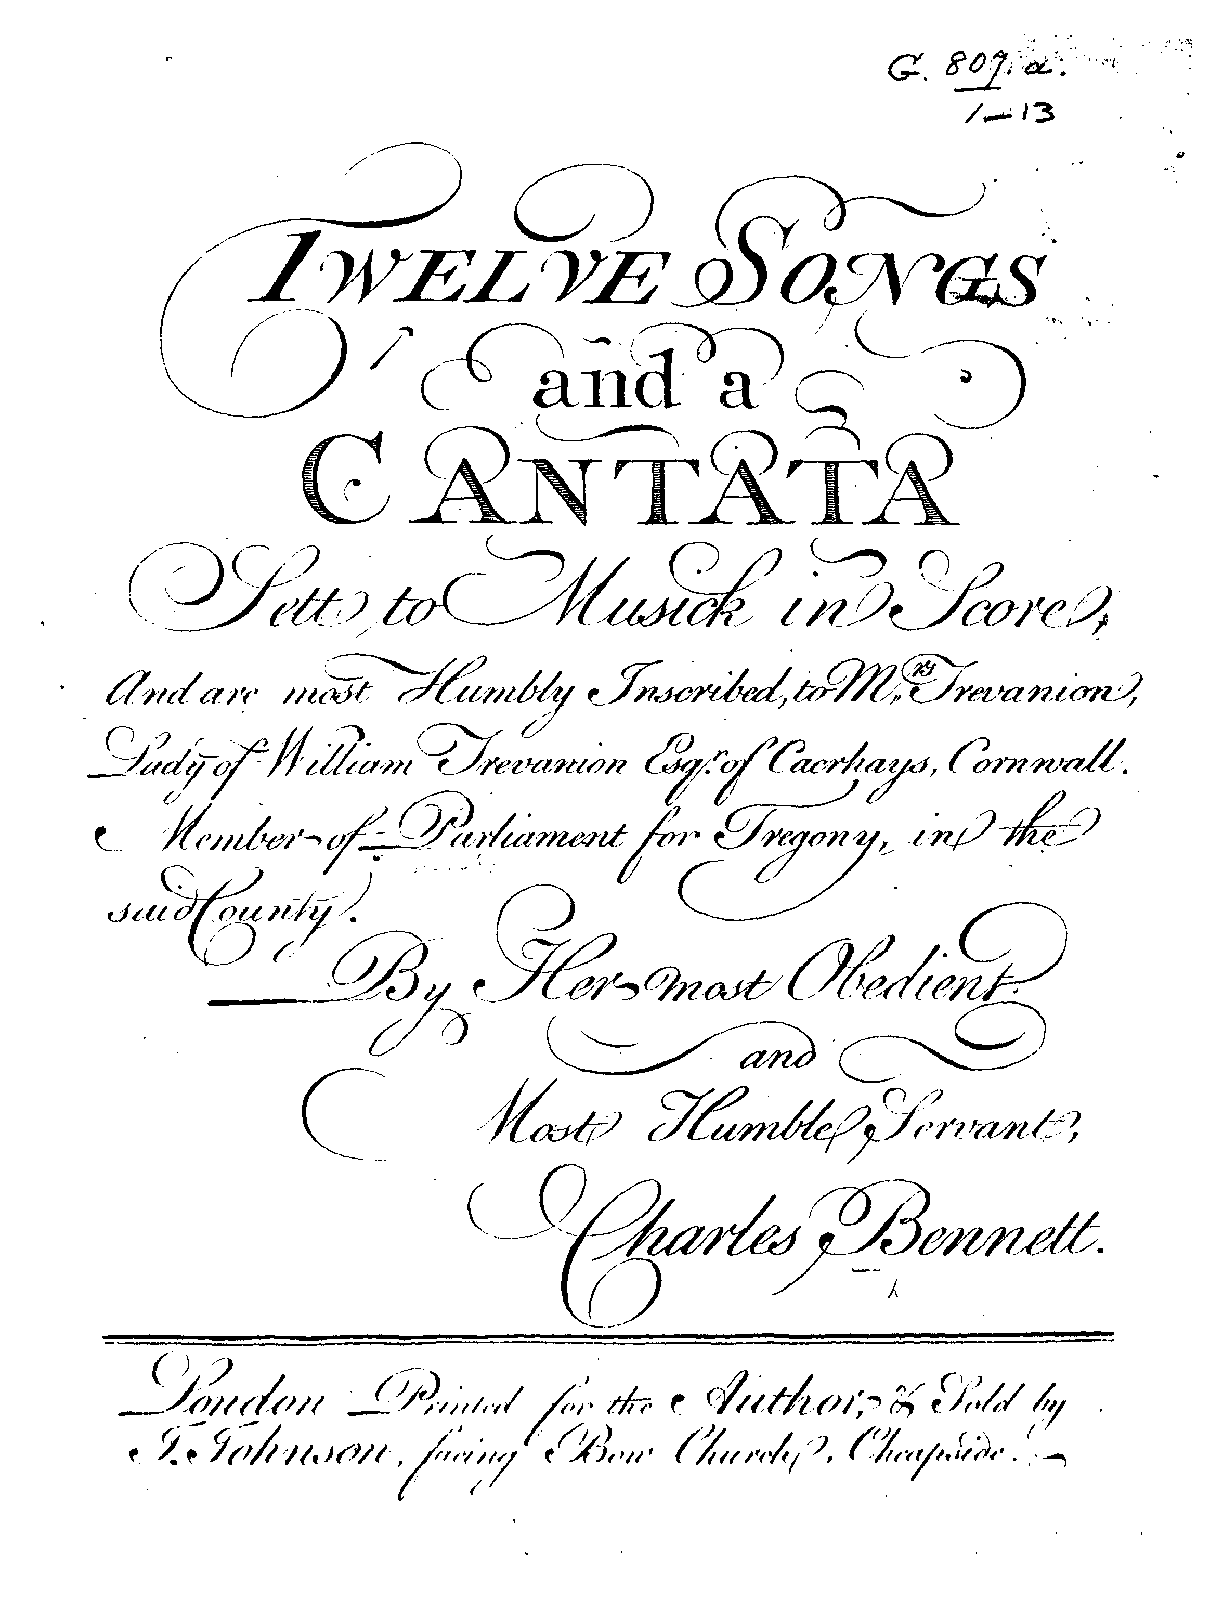 G. 809. a.
1–13
TWELVE SONGS
and a
CANTATA
Sett to Musick in Score,
And are most Humbly Inscribed, to Mrs. Trevanion,
Lady of William Trevanion Esqr. of Caerhays, Cornwall.
Member of Parliament for Tregony, in the
said County.
By Her most Obedient
and
Most Humble Servant,
Charles Bennett.
London Printed for the Author, & Sold by
J. Johnson, facing Bow Church, Cheapside.